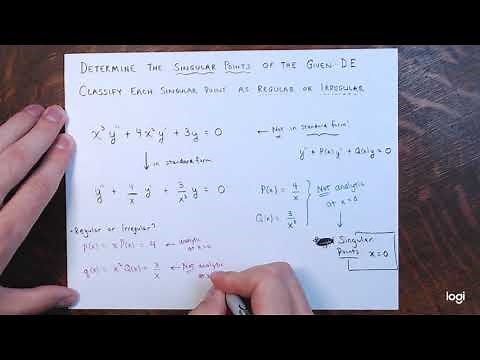 DETERMINE THE SINGULAR POINTS OF THE GIVEN D.E
CLASSIFY EACH SINGULAR POINT AS REGULAR OR IRREGULAR
x³y'' + 4x²y' + 3y = 0
← Not in standard form!
y'' + P(x)y' + Q(x)y = 0
↓ in standard form
y'' + 4/x y' + 3/x³ y = 0
P(x) = 4/x
Q(x) = 3/x³
Not analytic at x=0
Singular Points x=0
• Regular or Irregular?
p(x) = x P(x) = 4 ← analytic at x=0
q(x) = x² Q(x) = 3/x ← Not analytic
logi